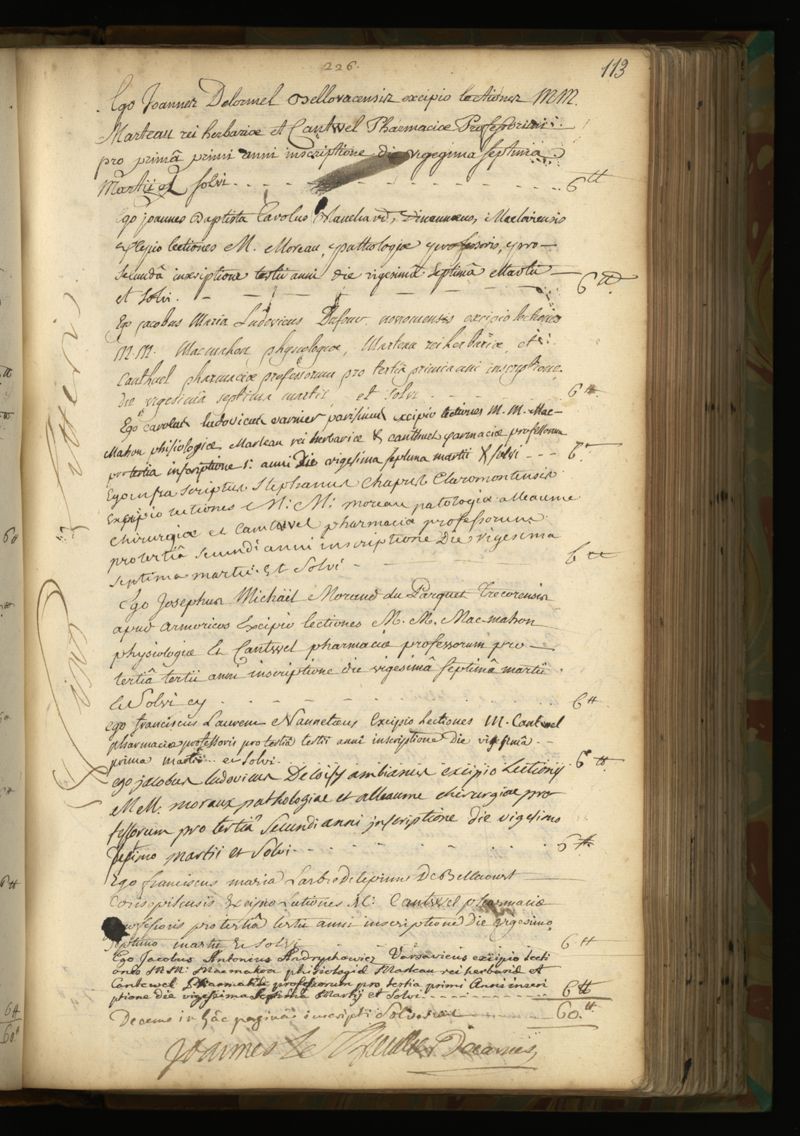 226.
113
Ego Joannes Delormel Bellovacensis excipio lectiones MM.
Marteau rei herbariæ et Cantwel Pharmaciæ Professorum
pro primâ primi anni inscriptione die vigegima septima
Martii et solvi - - - - 6 tt
Ego joannes Baptista Carolus dinannæus, Macloviensis
lectiones M. Moreau, pathologiæ professoris, pro-
secundâ inscriptione tertii anni die vigesimâ septimâ Martii
et solvi. - - - - 6 tt
Ego jacobus Maria Ludovicus Dufour excipio lectiones
M.M. Macmahon physiologiæ, Marteau rei herbariæ, et
Canthuel pharmaciæ professorum pro tertiâ primi anni inscriptione
die vigesimâ septima martii, et solvi 6 tt
Ego carolus ludovicus varnier parisinus excipio lectiones M. M. Mac-
Mahon phisiologiæ Marteau rei herbariæ & canthuel farmaciæ professorum
pro tertia inscriptione 1i anni die vigesima septima martii & solvi - - - 6 tt
Ego infra scriptus Stephanus Chapest Claromontensis
Excipio lectiones M: M: moreau patologia alleaume
chirurgiæ et Cantwel pharmacia professorum
pro tertiâ secundi anni inscriptione Die vigesima
septima martii Et Solvi - 6 tt
Ego Josephus Michaël Morand du Parquet Trecorensis
apud armoricos Excipio lectiones M. M. Mac-mahon
physiologiæ Et Cantwel pharmaciæ professorum pro
tertiâ tertii anni inscriptione die vigesimâ septimâ martii
et Solvi 6 tt
ego franciscus Laurent Nannetæus Excipio Lectiones M. Cantwel
pharmaciæ professoris pro tertiâ tertii anni inscriptione die vigesimâ
prima martii et solvi 6 tt
ego jacobus ludovicus Deloisy ambianus excipio Lectiones
M M. moraux pathologiae et alleaume chirurgiae pro-
fessorum pro tertiâ Secundi anni inscriptione die vigesimo
septimo martii et Solvi 6 tt
Ego franciscus maria Larbredelepine De Bellacourt
Corisopitensis Excipio lectiones M: Cantwel pharmaciæ
professoris pro tertiâ tertii anni inscriptione die vigesimo
septimo martii Et Solvi 6 tt
Ego Jacobus Antonius Andrychowicz Varsavicus excipio lecti
ones MM. Macmahon phisiologiæ Marteau rei herbariæ et
Cantwel professorum pro tertia primi Anni inscri
ptione die vigesima septima Martij et Solvi - - - 6 tt
Decem in hâc paginâ inscripti Solverunt 60. tt
Joannes Le Decanus